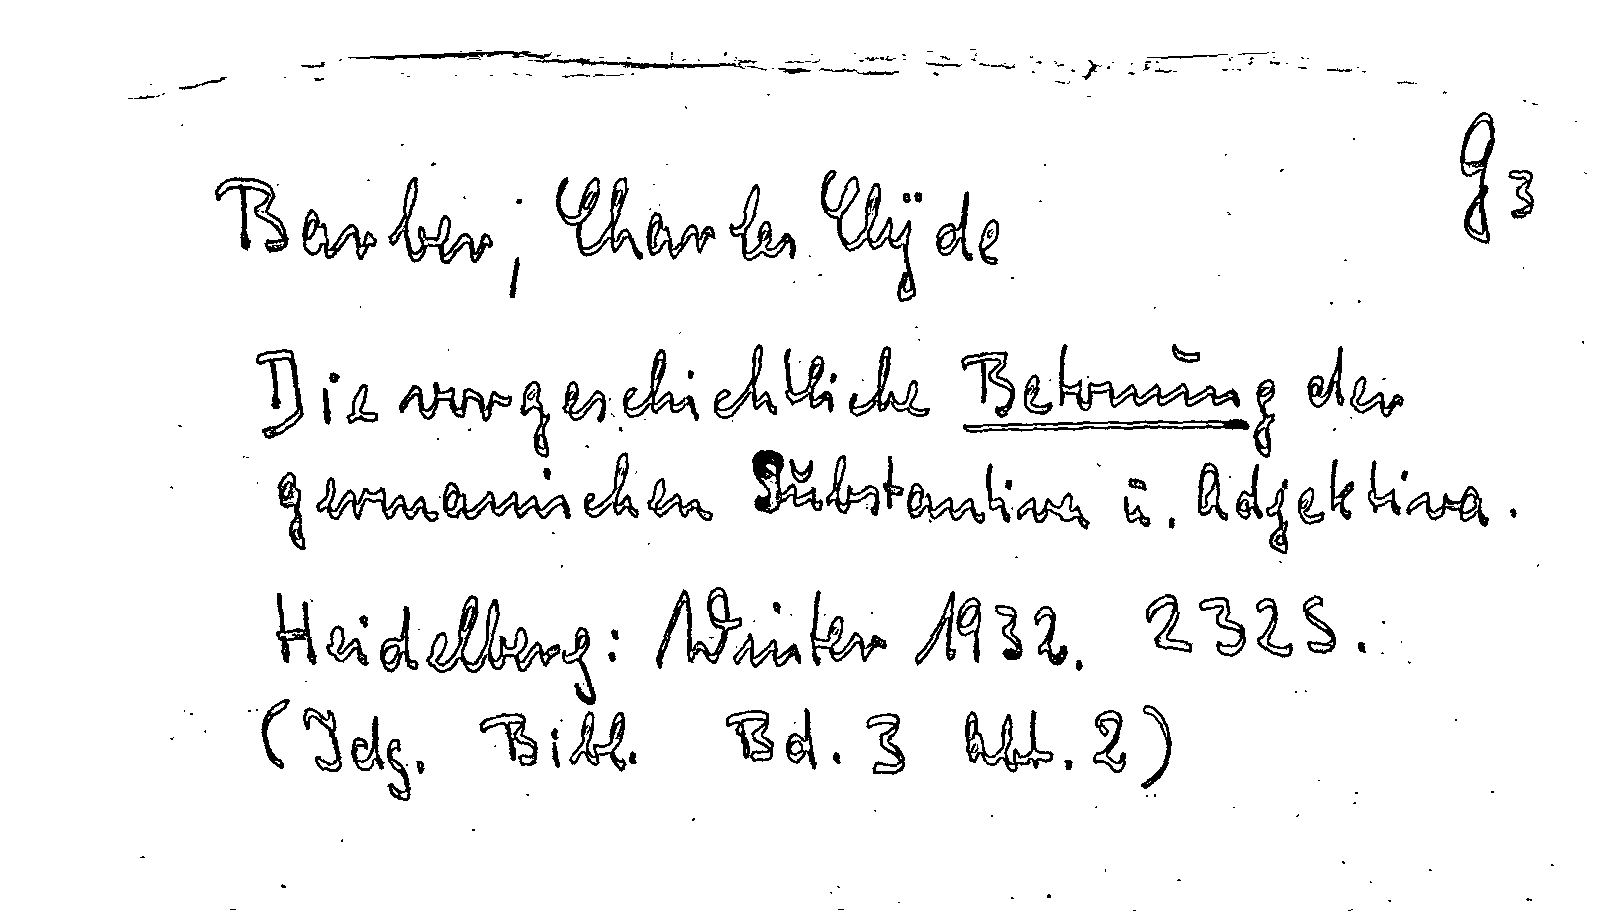 g3
Barber, Charles Clÿde
Die vorgeschichtliche Betonung der
germanischen Substantiva u. Adjektiva.
Heidelberg: Winter 1932. 232 S.
(Idg. Bibl. Bd. 3 Abt. 2)